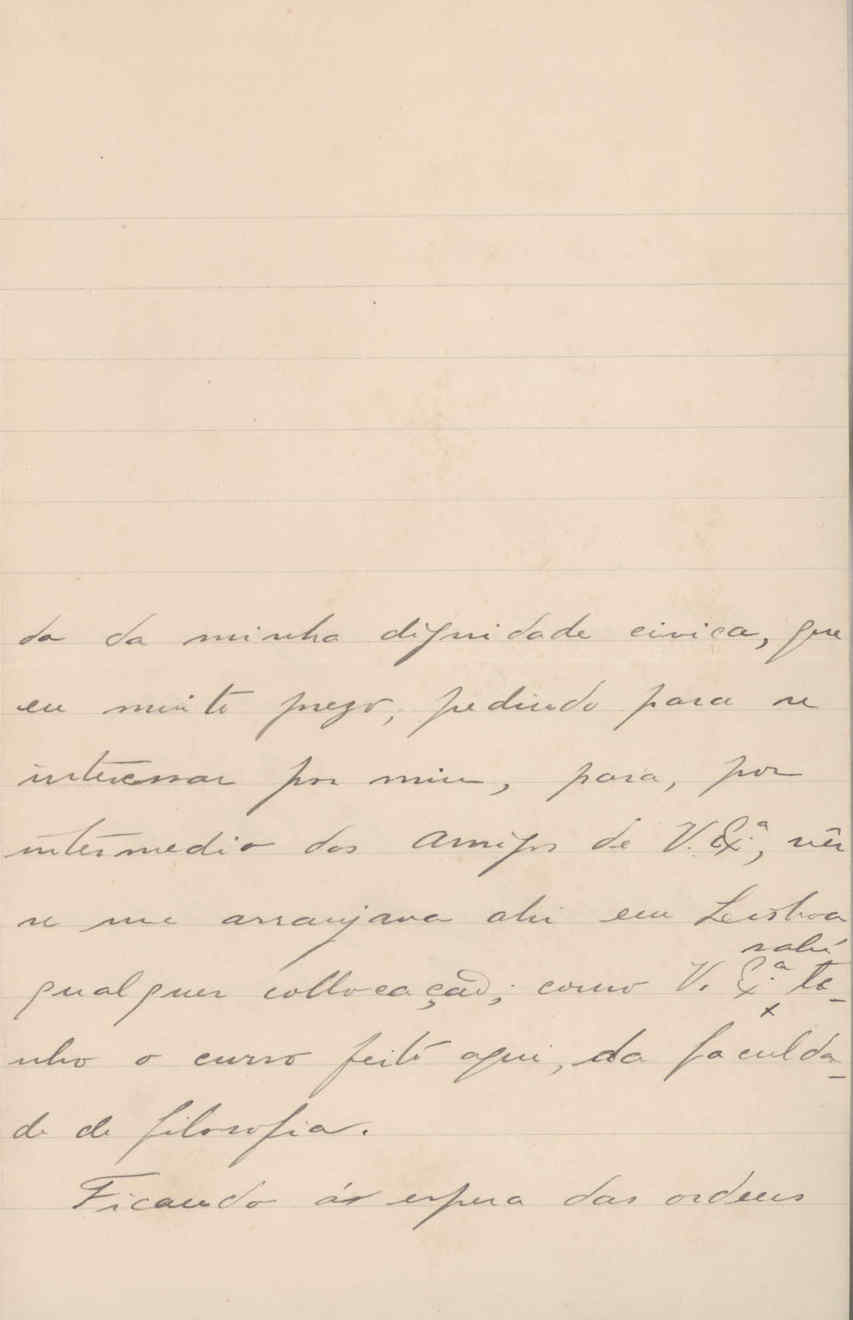 da da minha dignidade civica, que
eu muito prezo, pedindo para se
interessar por mim, para, por
intermedio dos amigos de V. Ex.ª, vêr
se me arranjava ahi em Lisboa
sabe
qualquer collocação; como V. Ex.ª te-
nho o curso feito aqui, da faculda-
de de filosofia.
Ficando ás espera das ordens